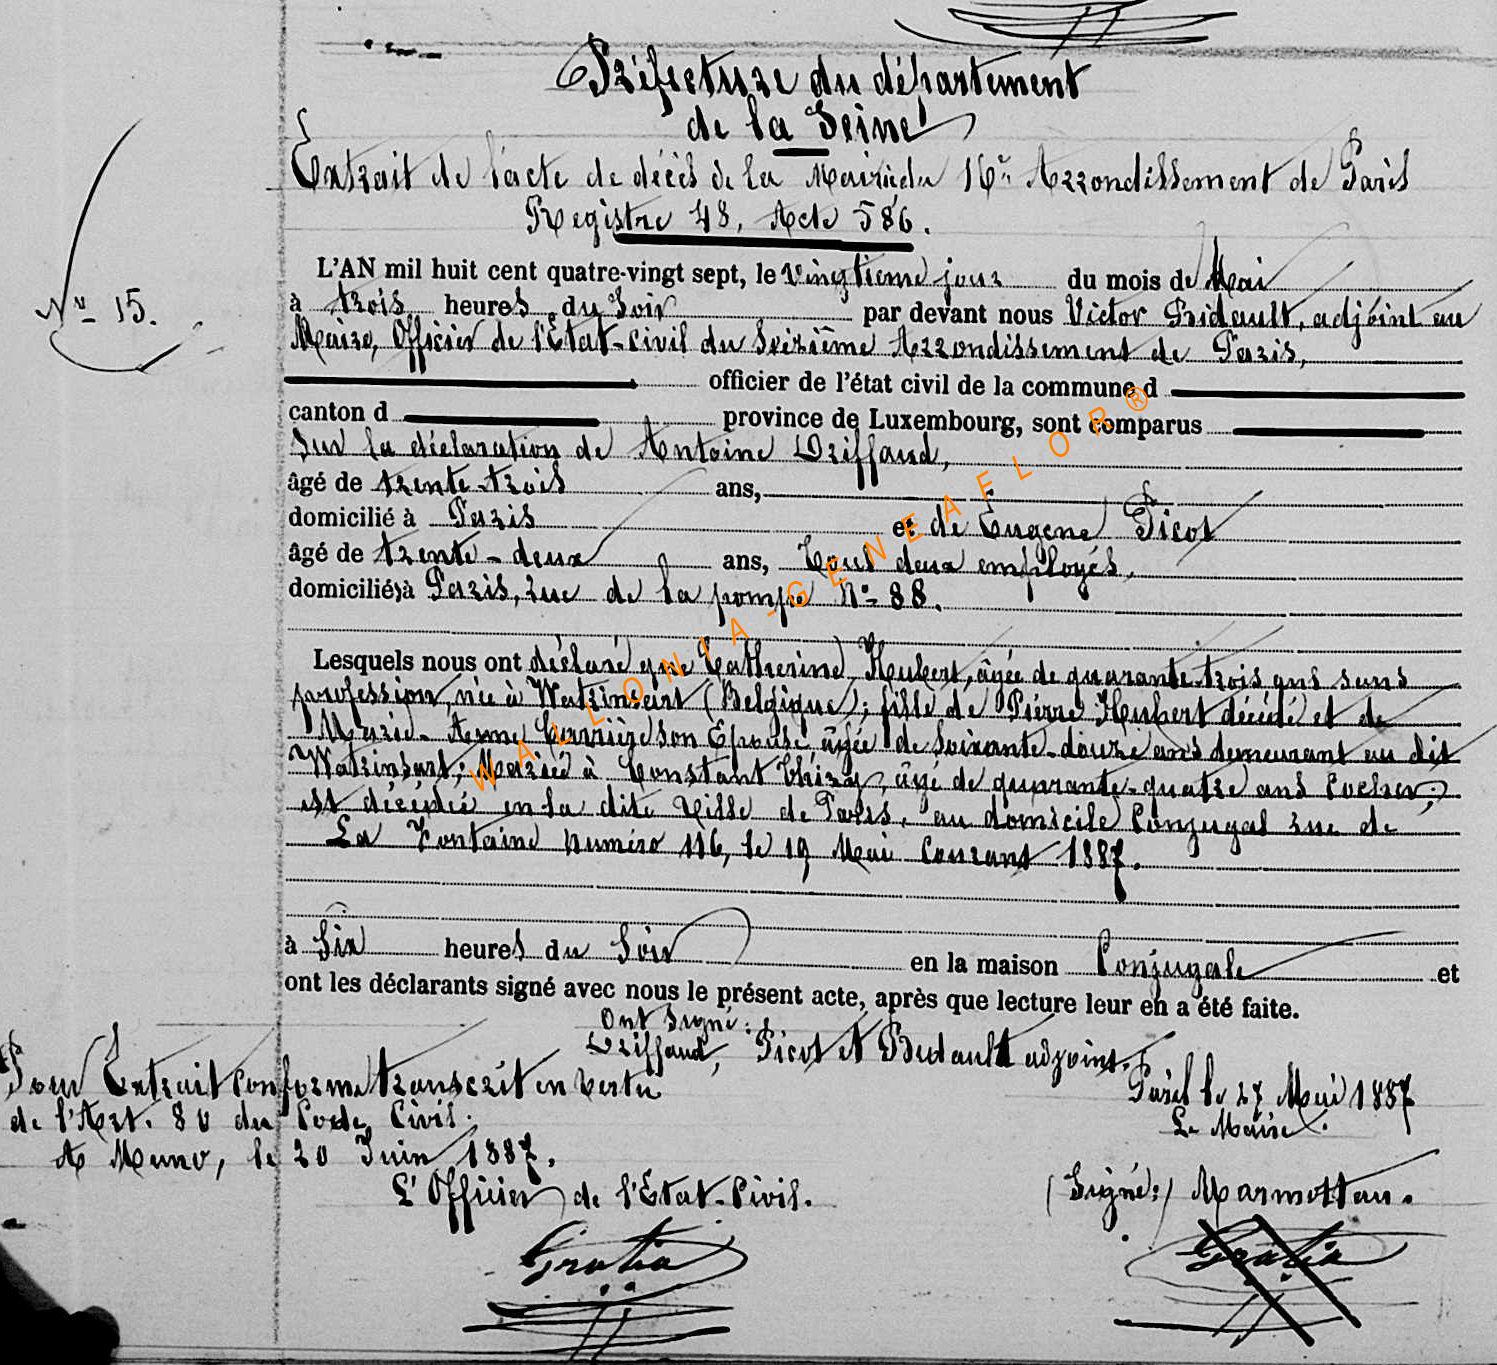 Préfecture du département
de la Seine
Extrait de l'acte de décès de la Mairie du 16e Arrondissement de Paris
Registre 48, Acte 586.
Nº 15.
L'AN mil huit cent quatre-vingt sept, le vingtième jour du mois de Mai
à trois heures du Soir par devant nous Victor Bidault, adjoint au
Maire, Officier de l'État-Civil du Seizième Arrondissement de Paris,
officier de l'état civil de la commune d
canton d province de Luxembourg, sont comparus
Sur la déclaration de Antoine Driffaud,
âgé de trente-trois ans,
domicilié à Paris et de Eugène Picot
âgé de trente-deux ans, tous deux employés,
domicilié à Paris, rue de la pompe Nº 88.
Lesquels nous ont déclaré que Catherine Hubert, âgée de quarante-trois ans sans
profession, née à Watrinsart (Belgique); fille de Pierre Hubert décédé et de
Marie-Anne son Epouse âgée de soixante-douze ans demeurant au dit
Watrinsart; Mariée à Constant Thiry, âgé de quarante-quatre ans Cocher;
est décédée en la dite Ville de Paris, au domicile Conjugal rue de
La Fontaine numéro 116, le 19 Mai Courant 1887.
à Six heures du Soir en la maison Conjugale et
ont les déclarants signé avec nous le présent acte, après que lecture leur en a été faite.
Ont Signé:
Driffaud, Picot et Bidault adjoint.
Pour Extrait Conforme transcrit en vertu
de l'Art. 80 du Code Civil.
A Muno, le 20 Juin 1887.
L'Officier de l'Etat-Civil.
Paris le 27 Mai 1887
Le Maire.
(Signé:) Marmottan.
Gratia
Gratia
WALLONIA-GENEAFLOR®